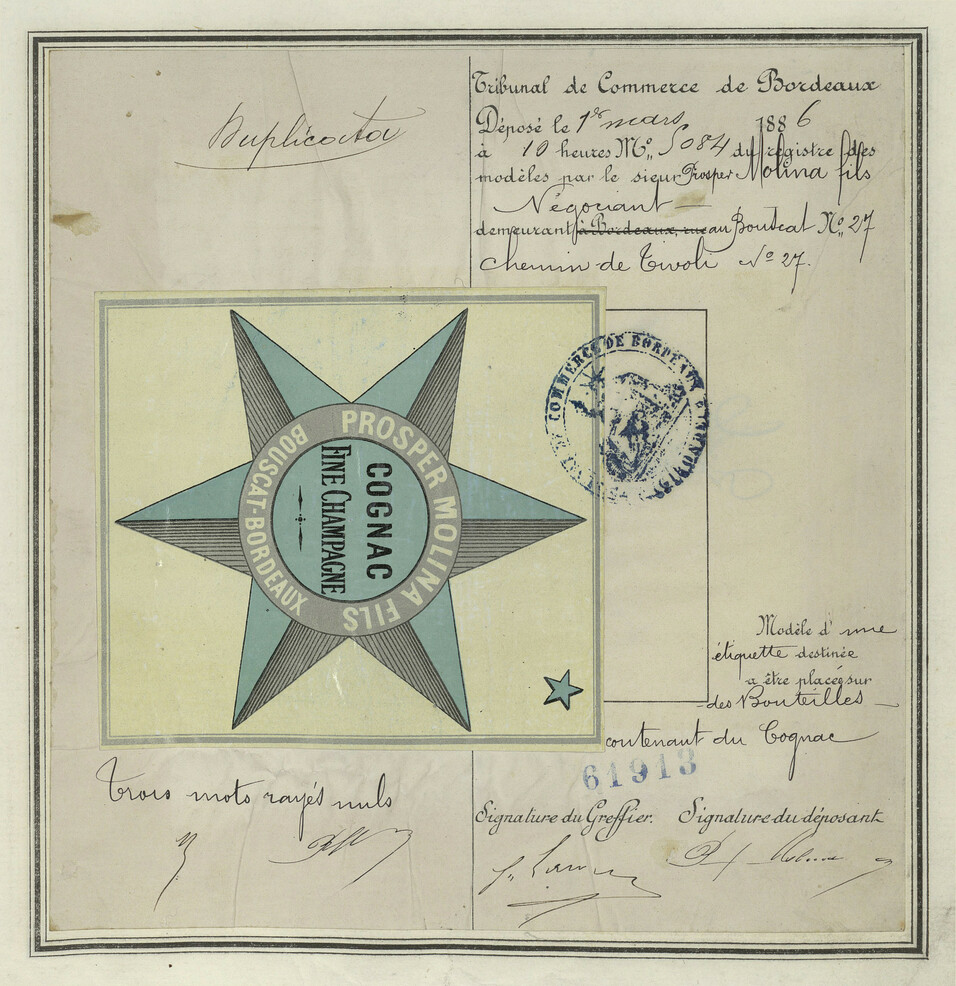 Duplicata
Tribunal de Commerce de Bordeaux
Déposé le 1er mars 1886
à 10 heures No. 5084 du registre des
modèles par le sieur Prosper Molina fils
Négociant
demeurant à Bordeaux, rue au Bouscat No. 27
Chemin de Tivoli No 27.
COMMERCE DE BORDEAUX
PROSPER MOLINA FILS
BOUSCAT-BORDEAUX
COGNAC
FINE CHAMPAGNE
Modèle d'une
étiquette destinée
a être placée sur
des Bouteilles
contenant du Cognac
61913
Trois mots rayés nuls
Signature du Greffier. Signature du déposant